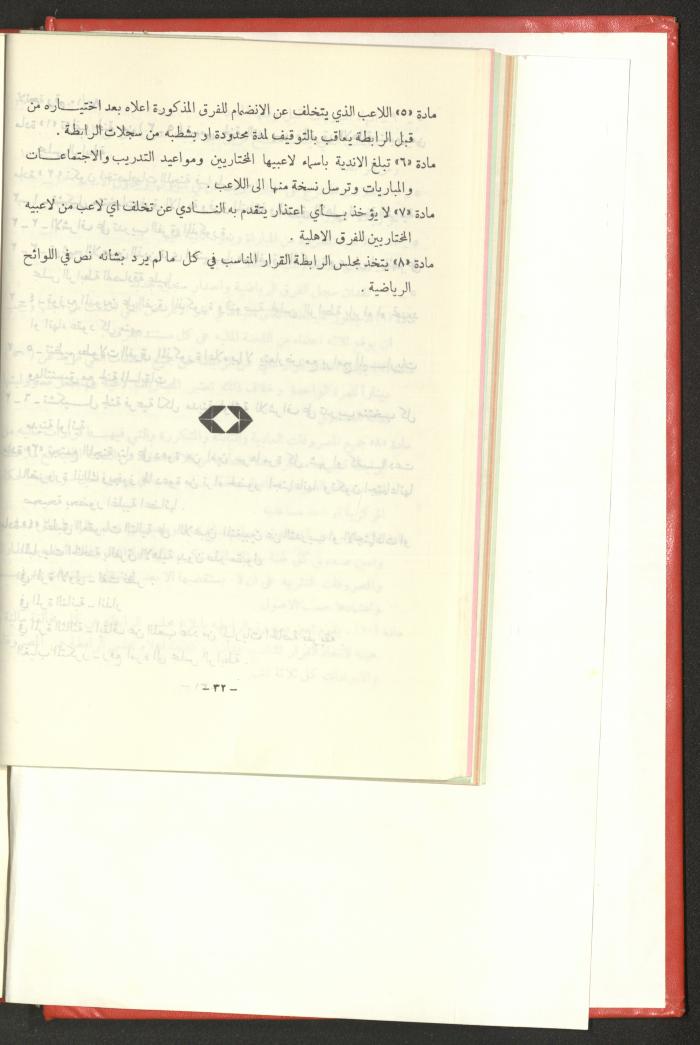 مادة «٥» اللاعب الذي يتخلف عن الانضمام للفرق المذكورة اعلاه بعد اختيــــاره من
قبل الرابطة يعاقب بالتوقيف لمدة محدودة او بشطبه من سجلات الرابطة .
مادة «٦» تبلغ الاندية باسماء لاعبيها المختاربين ومواعيد التدريب والاجتماعــــات
والمباريات وترسل نسخة منها الى اللاعب .
مادة «٧» لا يؤخذ بـــأي اعتذار يتقدم به النــــادي عن تخلف اي لاعب من لاعبيه
المختاربين للفرق الاهلية .
مادة «٨» يتخذ مجلس الرابطة القرار المناسب في كل ما لم يرد بشأنه نص في اللوائح
الرياضية .
– ٣٢ –